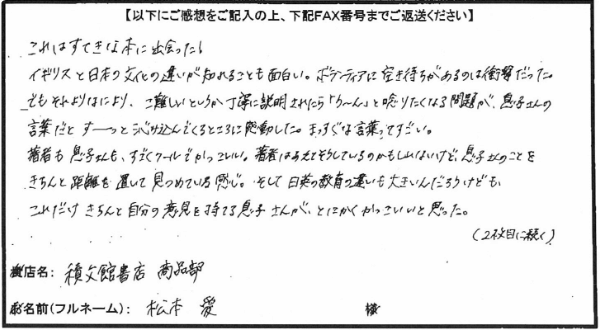 【以下にご感想をご記入の上、下記FAX番号までご返送ください】
これはすてきな本に出会った!
イギリスと日本の文化の違いが知れることも面白い。ボランティアに空き待ちがあるのは衝撃だった。
でもそれよりなにより、ご難しいというか丁寧に説明されたら「う〜ん」と唸りたくなる問題が、息子さんの
言葉だと すーっとシみ込んでくるところに感動した。まっすぐな言葉ってすごい。
著者も息子さんも、すごくクールでかっこいい。著者はあえてそうしているのかもしれないけど、息子さんのことを
きちんと距離を置いて見つめている感じ。そして日英の教育の違いも大きいんだろうけども
これだけ きちんと自分の意見を持てる息子さんが、とにかくかっこいいと思った。
(2枚目に続く)
店名: 積文館書店 商品部
お名前(フルネーム): 松本 愛 様